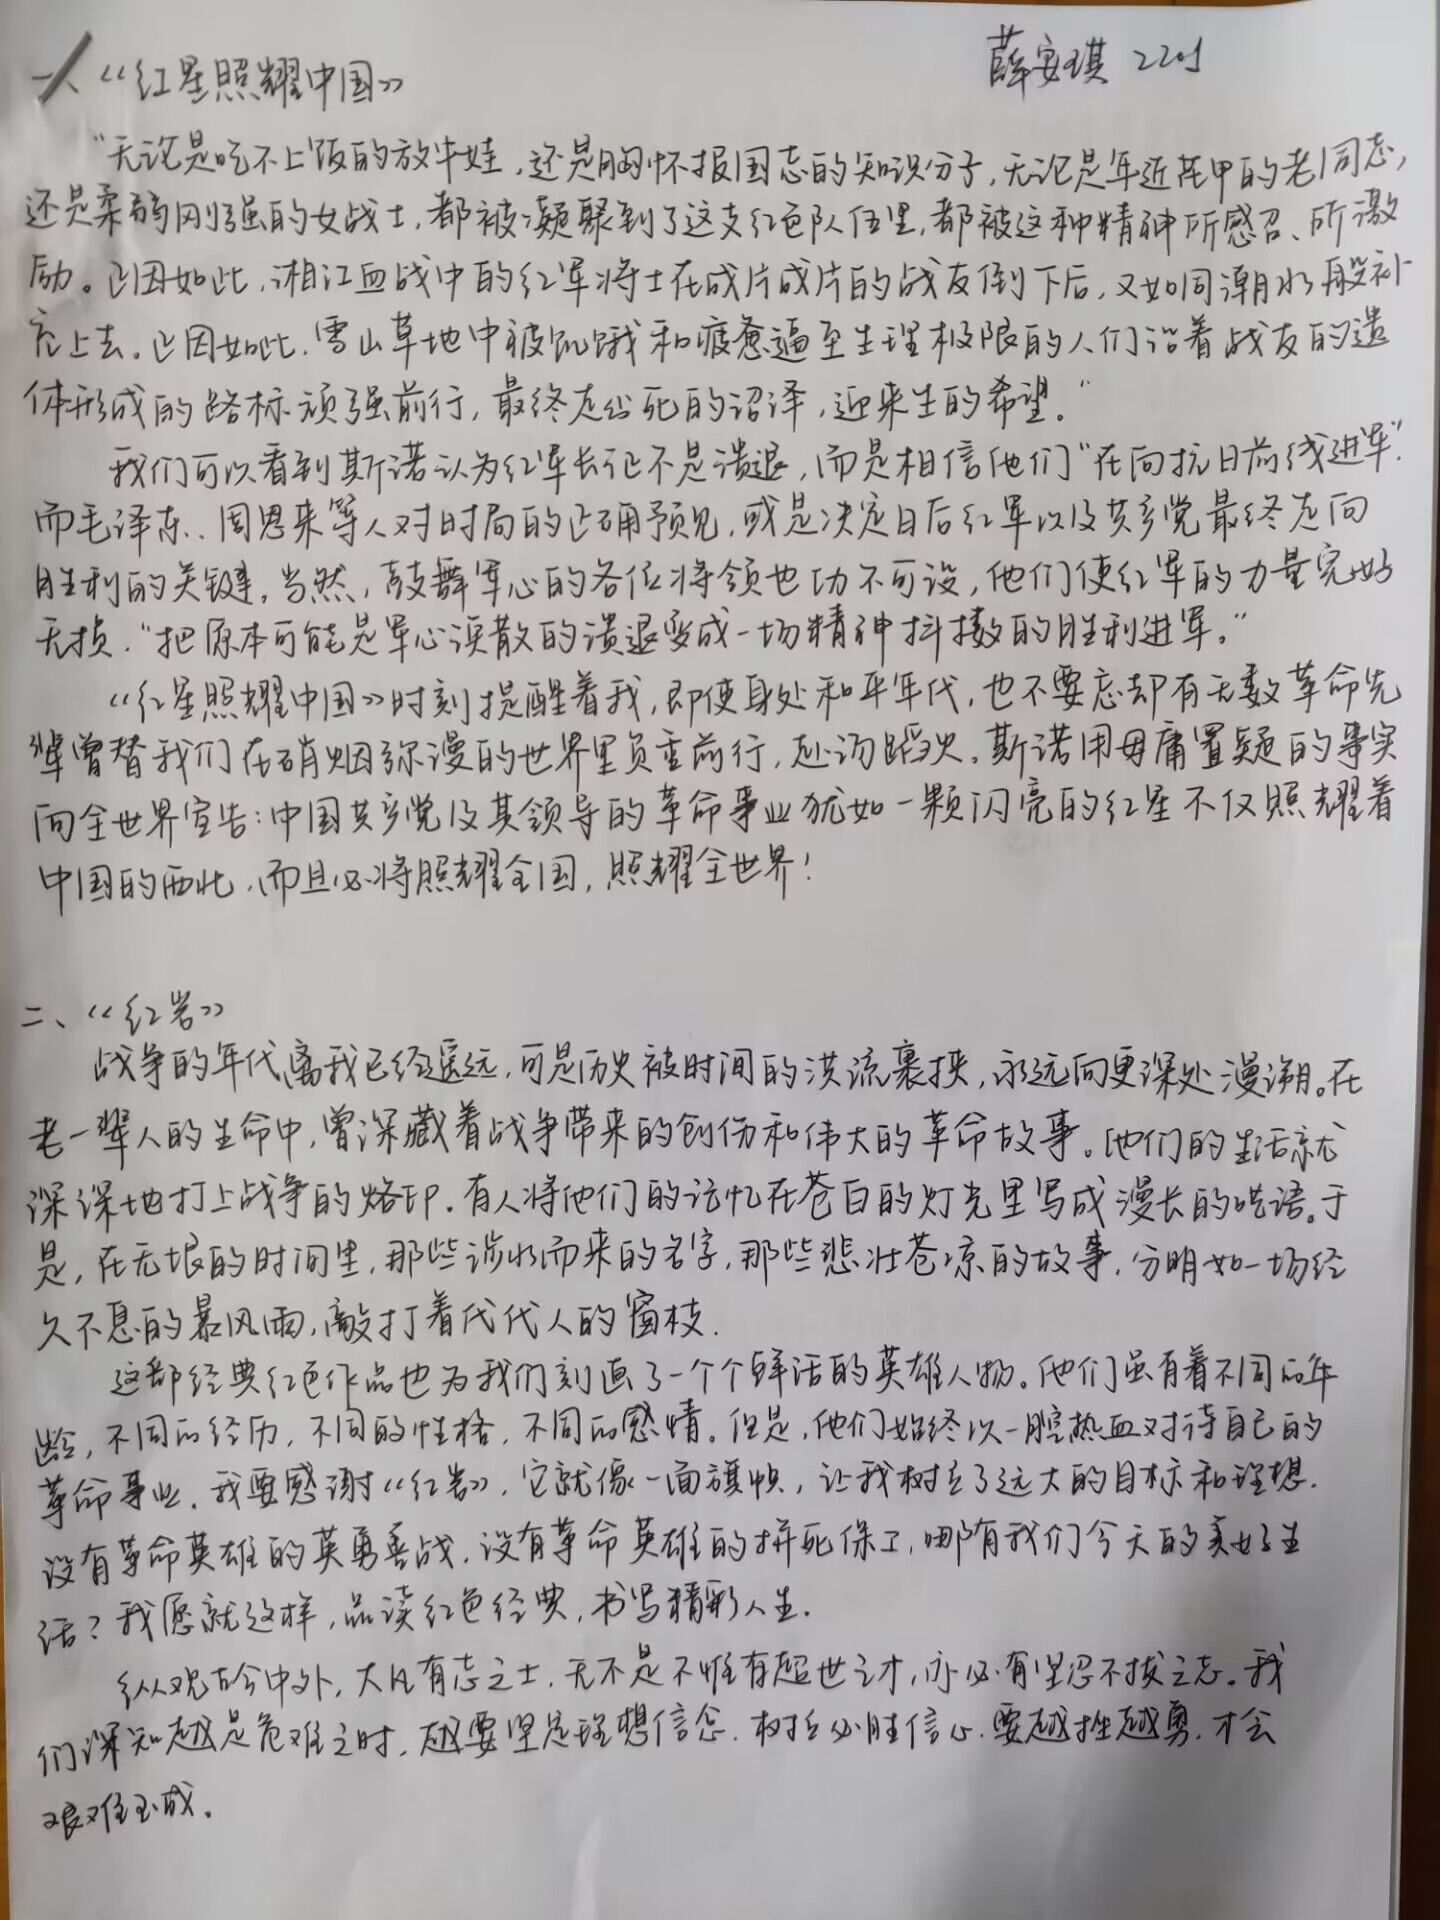 薛安琪 2201
一、《红星照耀中国》
“无论是吃不上饭的放牛娃，还是胸怀报国志的知识分子，无论是年近花甲的老同志，
还是柔弱刚强的女战士，都被凝聚到了这支红色队伍里，都被这种精神所感召、所激
励。正因如此，湘江血战中的红军将士在成片成片的战友倒下后，又如同潮水般补
充上去。正因如此，雪山草地中被饥饿和疲惫逼至生理极限的人们沿着战友的遗
体形成的路标顽强前行，最终走出死的沼泽，迎来生的希望。”
我们可以看到斯诺认为红军长征不是溃退，而是相信他们“在向抗日前线进军”.
而毛泽东、周恩来等人对时局的正确预见，或是决定日后红军以及共产党最终走向
胜利的关键。当然，鼓舞军心的各位将领也功不可没，他们使红军的力量完好
无损，“把原本可能是军心涣散的溃退变成一场精神抖擞的胜利进军。”
《红星照耀中国》时刻提醒着我，即使身处和平年代，也不要忘却有无数革命先
辈曾替我们在硝烟弥漫的世界里负重前行，赴汤蹈火。斯诺用毋庸置疑的事实
向全世界宣告：中国共产党及其领导的革命事业犹如一颗闪亮的红星不仅照耀着
中国的西北，而且必将照耀全国，照耀全世界！
二、《红岩》
战争的年代离我已经遥远，可是历史被时间的洪流裹挟，永远向更深处漫溯。在
老一辈人的生命中，曾深藏着战争带来的创伤和伟大的革命故事。他们的生活就
深深地打上战争的烙印。有人将他们的记忆在苍白的灯光里写成漫长的呓语。于
是，在无垠的时间里，那些涉水而来的名字，那些悲壮苍凉的故事，分明如一场经
久不息的暴风雨，敲打着代代人的窗枝.
这部经典红色作品也为我们刻画了一个个鲜活的英雄人物。他们虽有着不同的年
龄，不同的经历，不同的性格，不同的感情。但是，他们始终以一腔热血对待自己的
革命事业。我要感谢《红岩》，它就像一面旗帜，让我树立了远大的目标和理想.
没有革命英雄的英勇善战，没有革命英雄的拼死保卫，哪有我们今天的美好生
活？我愿就这样，品读红色经典，书写精彩人生.
纵观古今中外，大凡有志之士，无不是不惟有超世之才，亦必有坚忍不拔之志。我
们深知越是危难之时，越要坚定理想信念，树立必胜信心，要越挫越勇，才会
艰难玉成。